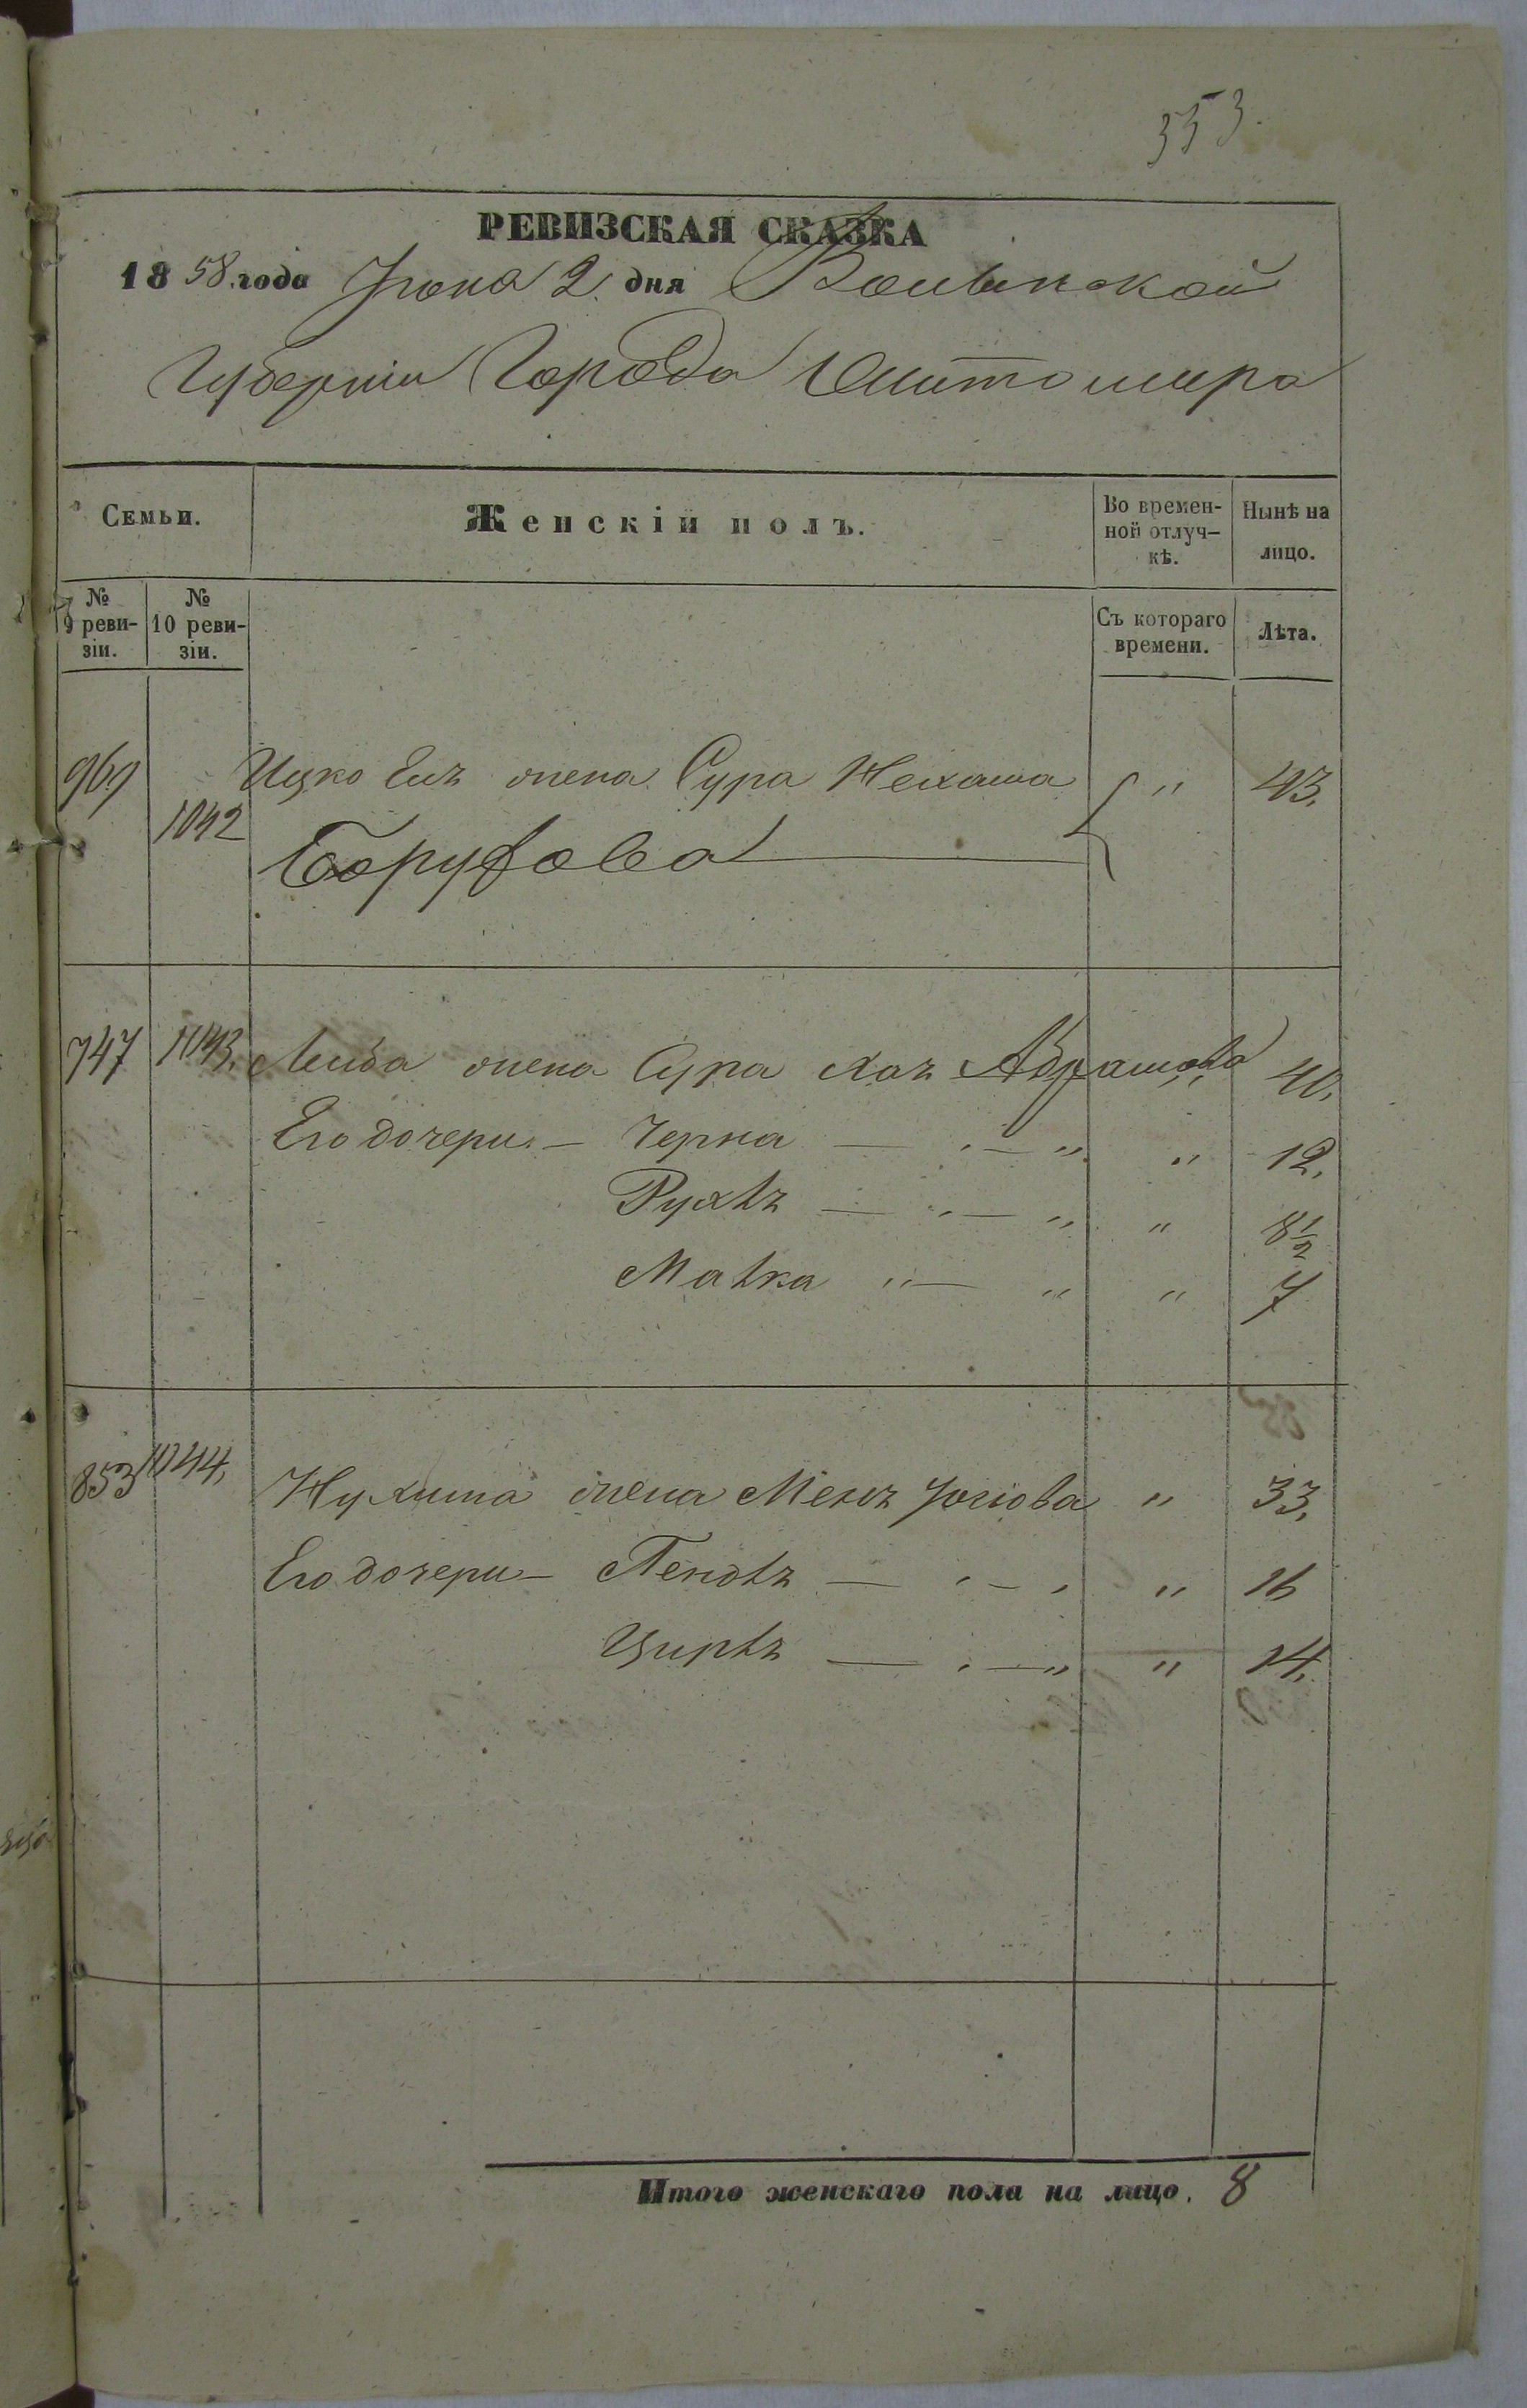 353.
РЕВИЗСКАЯ СКАЗКА
1858 года Іюня 2 дня Волынской
Губерніи Города Житомира
Семьи.
Женскій полъ.
Во времен-
ной отлуч-
кѣ.
Ныне на
лицо.
№
9 реви-
зіи.
№
10 реви-
зіи.
Съ котораго
времени.
Лѣта.
969 Ицко Еля жена Сура Нехама " 43.
1042 Борухова
747 1043. Лейба жена Сура Хая Абрамова " 40.
Его дочери — Черна — " — " " 12.
Рухля — " — " " 8½
Малка " — " " 7
853 1044. Нухима жена Меня Іосіова " 33.
Его дочери — — " — " " 16
Цирля — " — " " 14.
Итого женскаго пола на лицо. 8